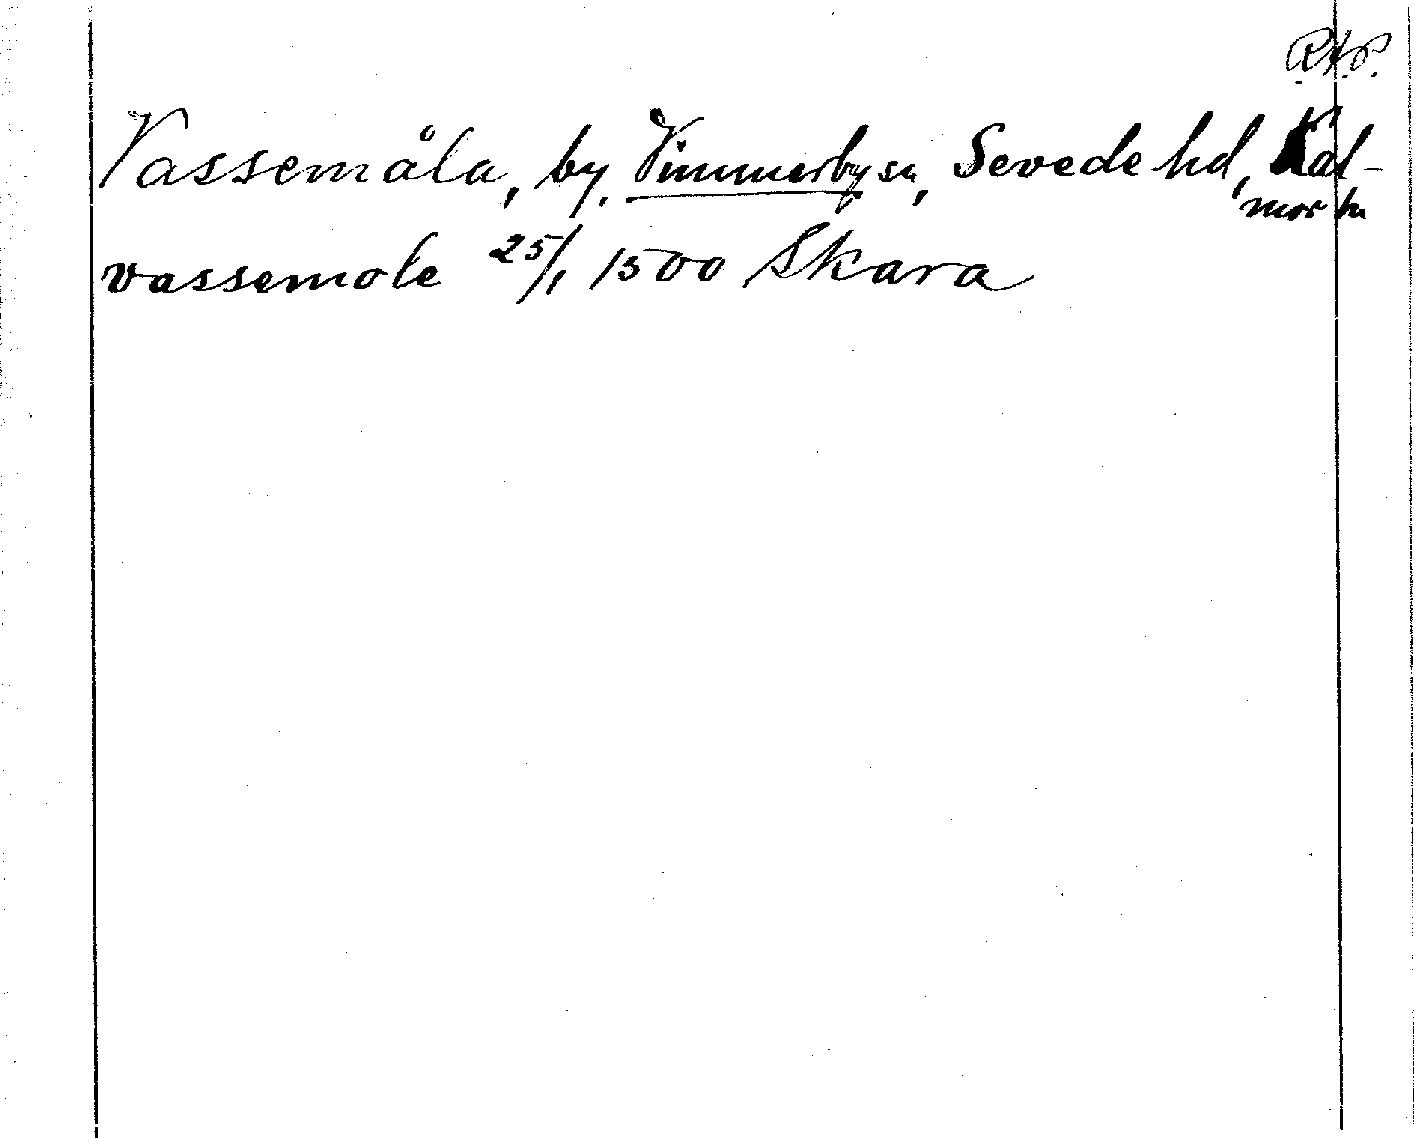 R.A.P.
Vassemåla, by, Vimmerby sn, Sevede hd, Kal-
mar ln
vassemole 25/1 1500 Skara